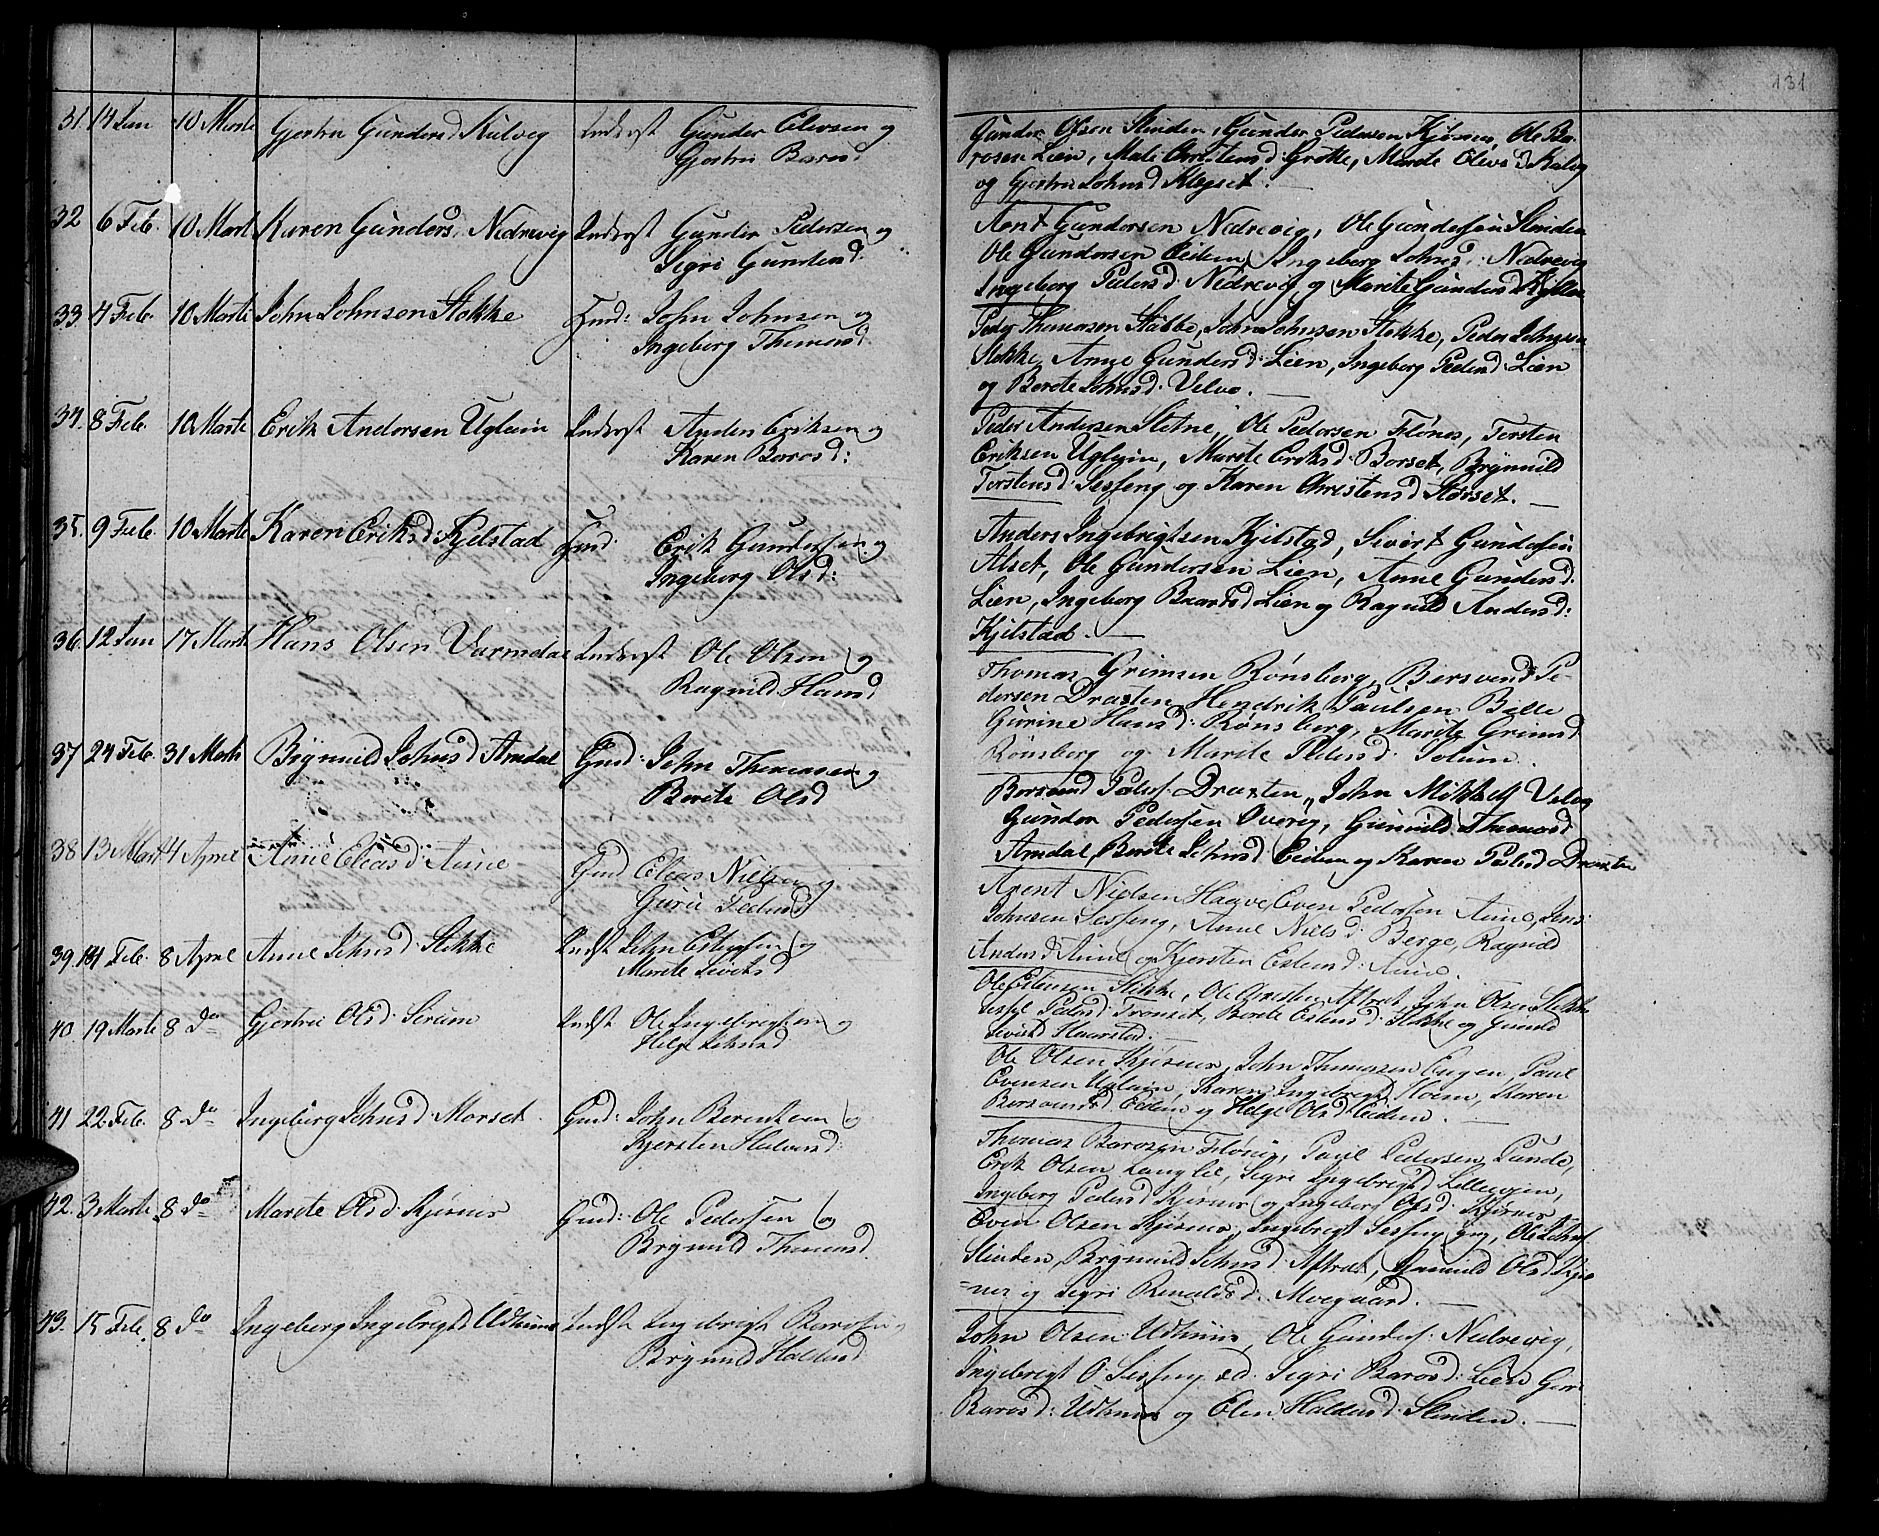 131
31. 14 Jan 10 Marte Gjertru Gundersd Kulvig Inderst Gunder Elevsen og
Gjertru Barosd
Gunder Olsen Slinden, Gunder Pedersen Kjøsnes, Ole Ba-
rosen Lien, Mali Christensd Grøtte, Marite Elevsd Kalvg
og Gjertru Johnsd Klegset.
32 6 Feb. 10 Mart Karen Gundersd. Nedrevig Inderst Gunder Pedersen og
Segri Gundersd.
Arnt Gundersen Nedrevig, Ole Gundersen Slinden
Ole Gundersen Eidem, Ingeborg Johnsd. Nedrevig
Ingeborg Pedersd Nedrevig og Marite Gundersd
33. 4 Feb. 10 Marte John Johnsen Stokke Gmd: John Johnsen og
Ingeborg Thomasd
Peder Thomasen Stubbe, John Johnsen Stokke, Peder Johnsen
Stokke, Anne Gundersd Lien, Ingeborg Pedersd Lien
og Berete Johnsd. Velve.
34. 8 Feb. 10 Marte Erik Andersen Uglem Inderst Anders Eriksen og
Karen Barosd:
Peder Andersen Sletne, Ole Pedersen Flønes, Torsten
Eriksen Uglem, Marite Eriksd. Borset, Brynnild
Torstensd. Sesseng og Karen Christensd Storset.
35. 9 Feb. 10 Marte Karen Eriksd. Kjelstad Gmd. Erik Gundersen og
Ingeborg Olsd:
Anders Ingebrigtsen Kjelstad, Sivert Gundersen
Alset, Ole Gundersen Lien, Anne Gundersd.
Lien, Ingeborg Baardsd Lien og Ragnild Andersd:
Kjelstad.
36. 12 Jan 17 Marte Hans Olsen Varmdal Inderst Ole Olsen og
Ragnild Hansd
Thomas Grimsen Rønsberg, Bersvend Pe-
dersen Draxten, Hendrik Paulsen Balle
Gurine Hansd: Rønsberg, Marite Grimsd
Rønsberg og Marite Pedersd Solum.
37 24 Feb. 31 Marts Brynnild Johnsd Amdal Gmd: John Thomasen og
Berete Olsd
Bersvend Peders. Draxten, John Mikkels. Velve
Gunder Pedersen Overvig, Gunnild Thomasd
Amdal, Berete Johnsd Eidem og Karen Pedersd Draxten
38 13 Mart 4 Aprel Anne Eleasd. Aune Gmd Eleas Nielsen og
Guru Pedersd
Arent Nielsen Haave, Even Pedersen Aune, Jens
Johnsen Sesseng, Anne Nielsd. Berge, Ragnild
Andersd Aune og Kjersten Estensd: Aune.
39. 14 Feb. 8 Aprel Anne Johnsd. Stokke Indst John Estensen og
Marite Sivertsd
Ole Estensen Stokke, Ole Arntsen Aftret, John Olsen Stokke
Pedersd. Tronset, Berete Estensd. Stokke og Gunnild
Sivertsd Haarstad.
40 19 Marte 8 Do Gjertru Olsd. Serum Indst Ole Ingebrigtsen og
Helge Johnsd
Ole Olsen Kjøsnes, John Thomasen Engen, Paul
Evensen Uglem, Karen Ingebrigtsd Moen, Karen
Bersvendsd Eidem og Helge Olsd Eidem.
41 22 Feb. 8 Do Ingeborg Johnsd. Morset. Gmd: John Berentsen og
Kjersten Halvorsd:
Thomas Barosen Flønes, Paul Pedersen Punde,
Erik Olsen Langlie, Segri Ingebrigtsd Lilleevjen,
Ingeborg Pedersd Kjøsnes og Ingeborg Olsd. Kjøsnes.
42. 3 Marte 8 Do Marite Olsd. Kjøsnes Gmd: Ole Pedersen og
Brynnild Thomasd.
Even Olsen Kjøsnes, Ingebrigt Sesseng, Ole Johns.
Slinden, Brynnild Johnsd. Aftret, Gunnild Olsd Kjøs-
=nes og Segri Renaldsd. Moegaard.
43. 15 Feb. 8 Do Ingeborg Ingebrigtsd Udhuus Indst Ingebrigt Barosen og
Brynnild Haldorsd.
John Olsen Udhuus, Ole Gunders. Nedrevig,
Ingebrigt O. Sesseng, Segri Barosd: Lien
Barosd: Udhuus og Elen Haldorsd Slinden.